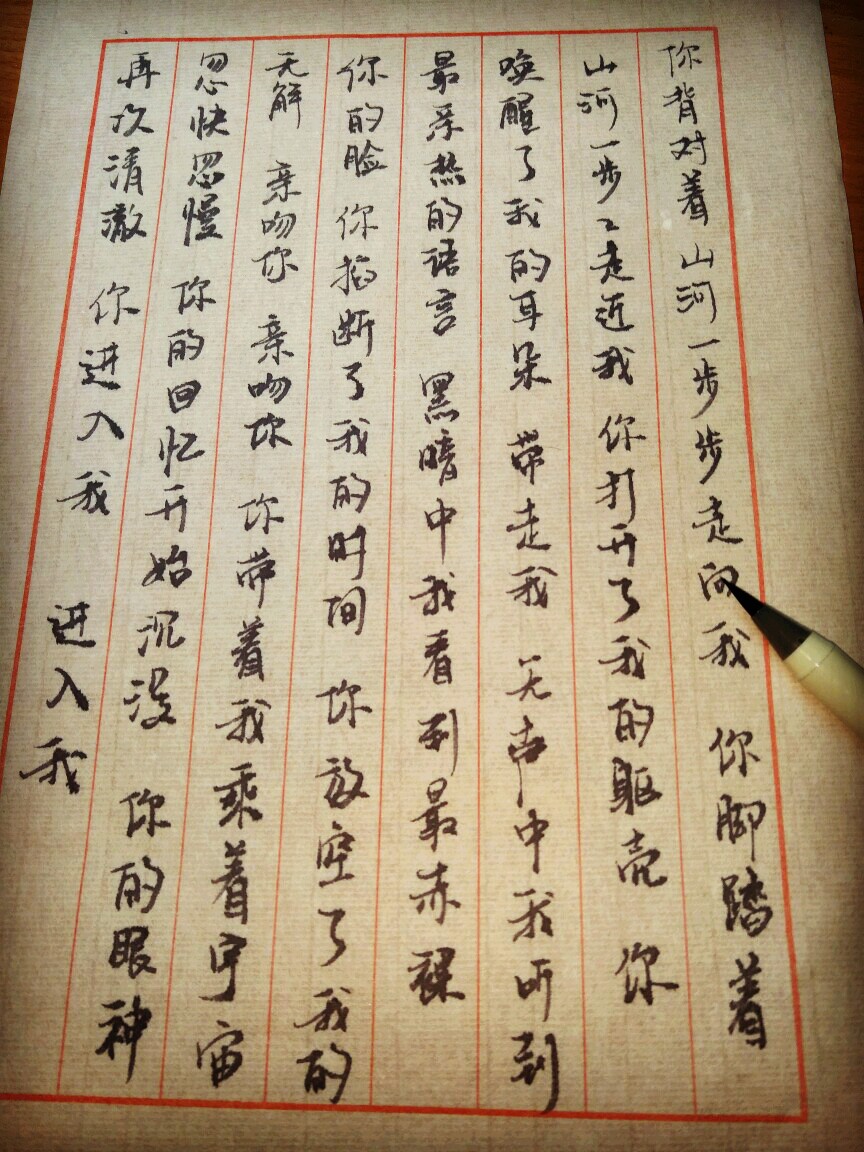 你背对着 山河一步步走向我 你脚踏着
山河一步々走近我 你打开了我的躯壳 你
唤醒了我的耳朵 带走我 无声中我听到
最亲热的语言 黑暗中我看到最赤裸
你的脸 你掐断了我的时间 你放空了我的
无解 亲吻你 亲吻你 你带着我乘着宇宙
忽快忽慢 你的回忆开始沉没 你的眼神
再次清澈 你进入我 进入我